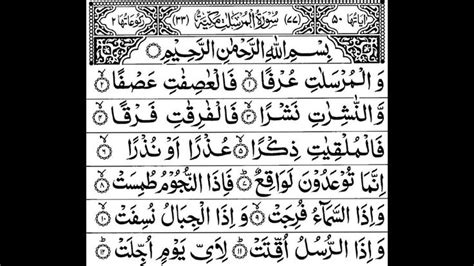 اٰیَاتُهَا ٥٠ (٧٧) سُوْرَةُ الْمُرْسَلٰتِ مَكِّيَّةٌ (٣٣) رُكُوْعَاتُهَا ٢
بِسْمِ اللّٰهِ الرَّحْمٰنِ الرَّحِيْمِ
وَ الْمُرْسَلٰتِ عُرْفًا ١ فَالْعٰصِفٰتِ عَصْفًا ٢
وَّ النّٰشِرٰتِ نَشْرًا ٣ فَالْفٰرِقٰتِ فَرْقًا ٤
فَالْمُلْقِيٰتِ ذِكْرًا ٥ عُذْرًا اَوْ نُذْرًا ٦
اِنَّمَا تُوْعَدُوْنَ لَوَاقِعٌ ٧ فَاِذَا النُّجُوْمُ طُمِسَتْ ٨
وَ اِذَا السَّمَآءُ فُرِجَتْ ٩ وَ اِذَا الْجِبَالُ نُسِفَتْ ١٠
وَ اِذَا الرُّسُلُ اُقِّتَتْ ١١ لِاَيِّ يَوْمٍ اُجِّلَتْ ١٢